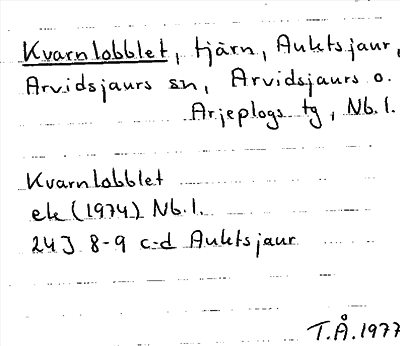 Kvarnlobblet, tjärn, Auktsjaur,
Arvidsjaurs sn, Arvidsjaurs o.
Arjeplogs tg, Nb.l.
Kvarnlobblet
ek (1974) Nb.l.
24J 8-9 c-d Auktsjaur
T.Å.1977